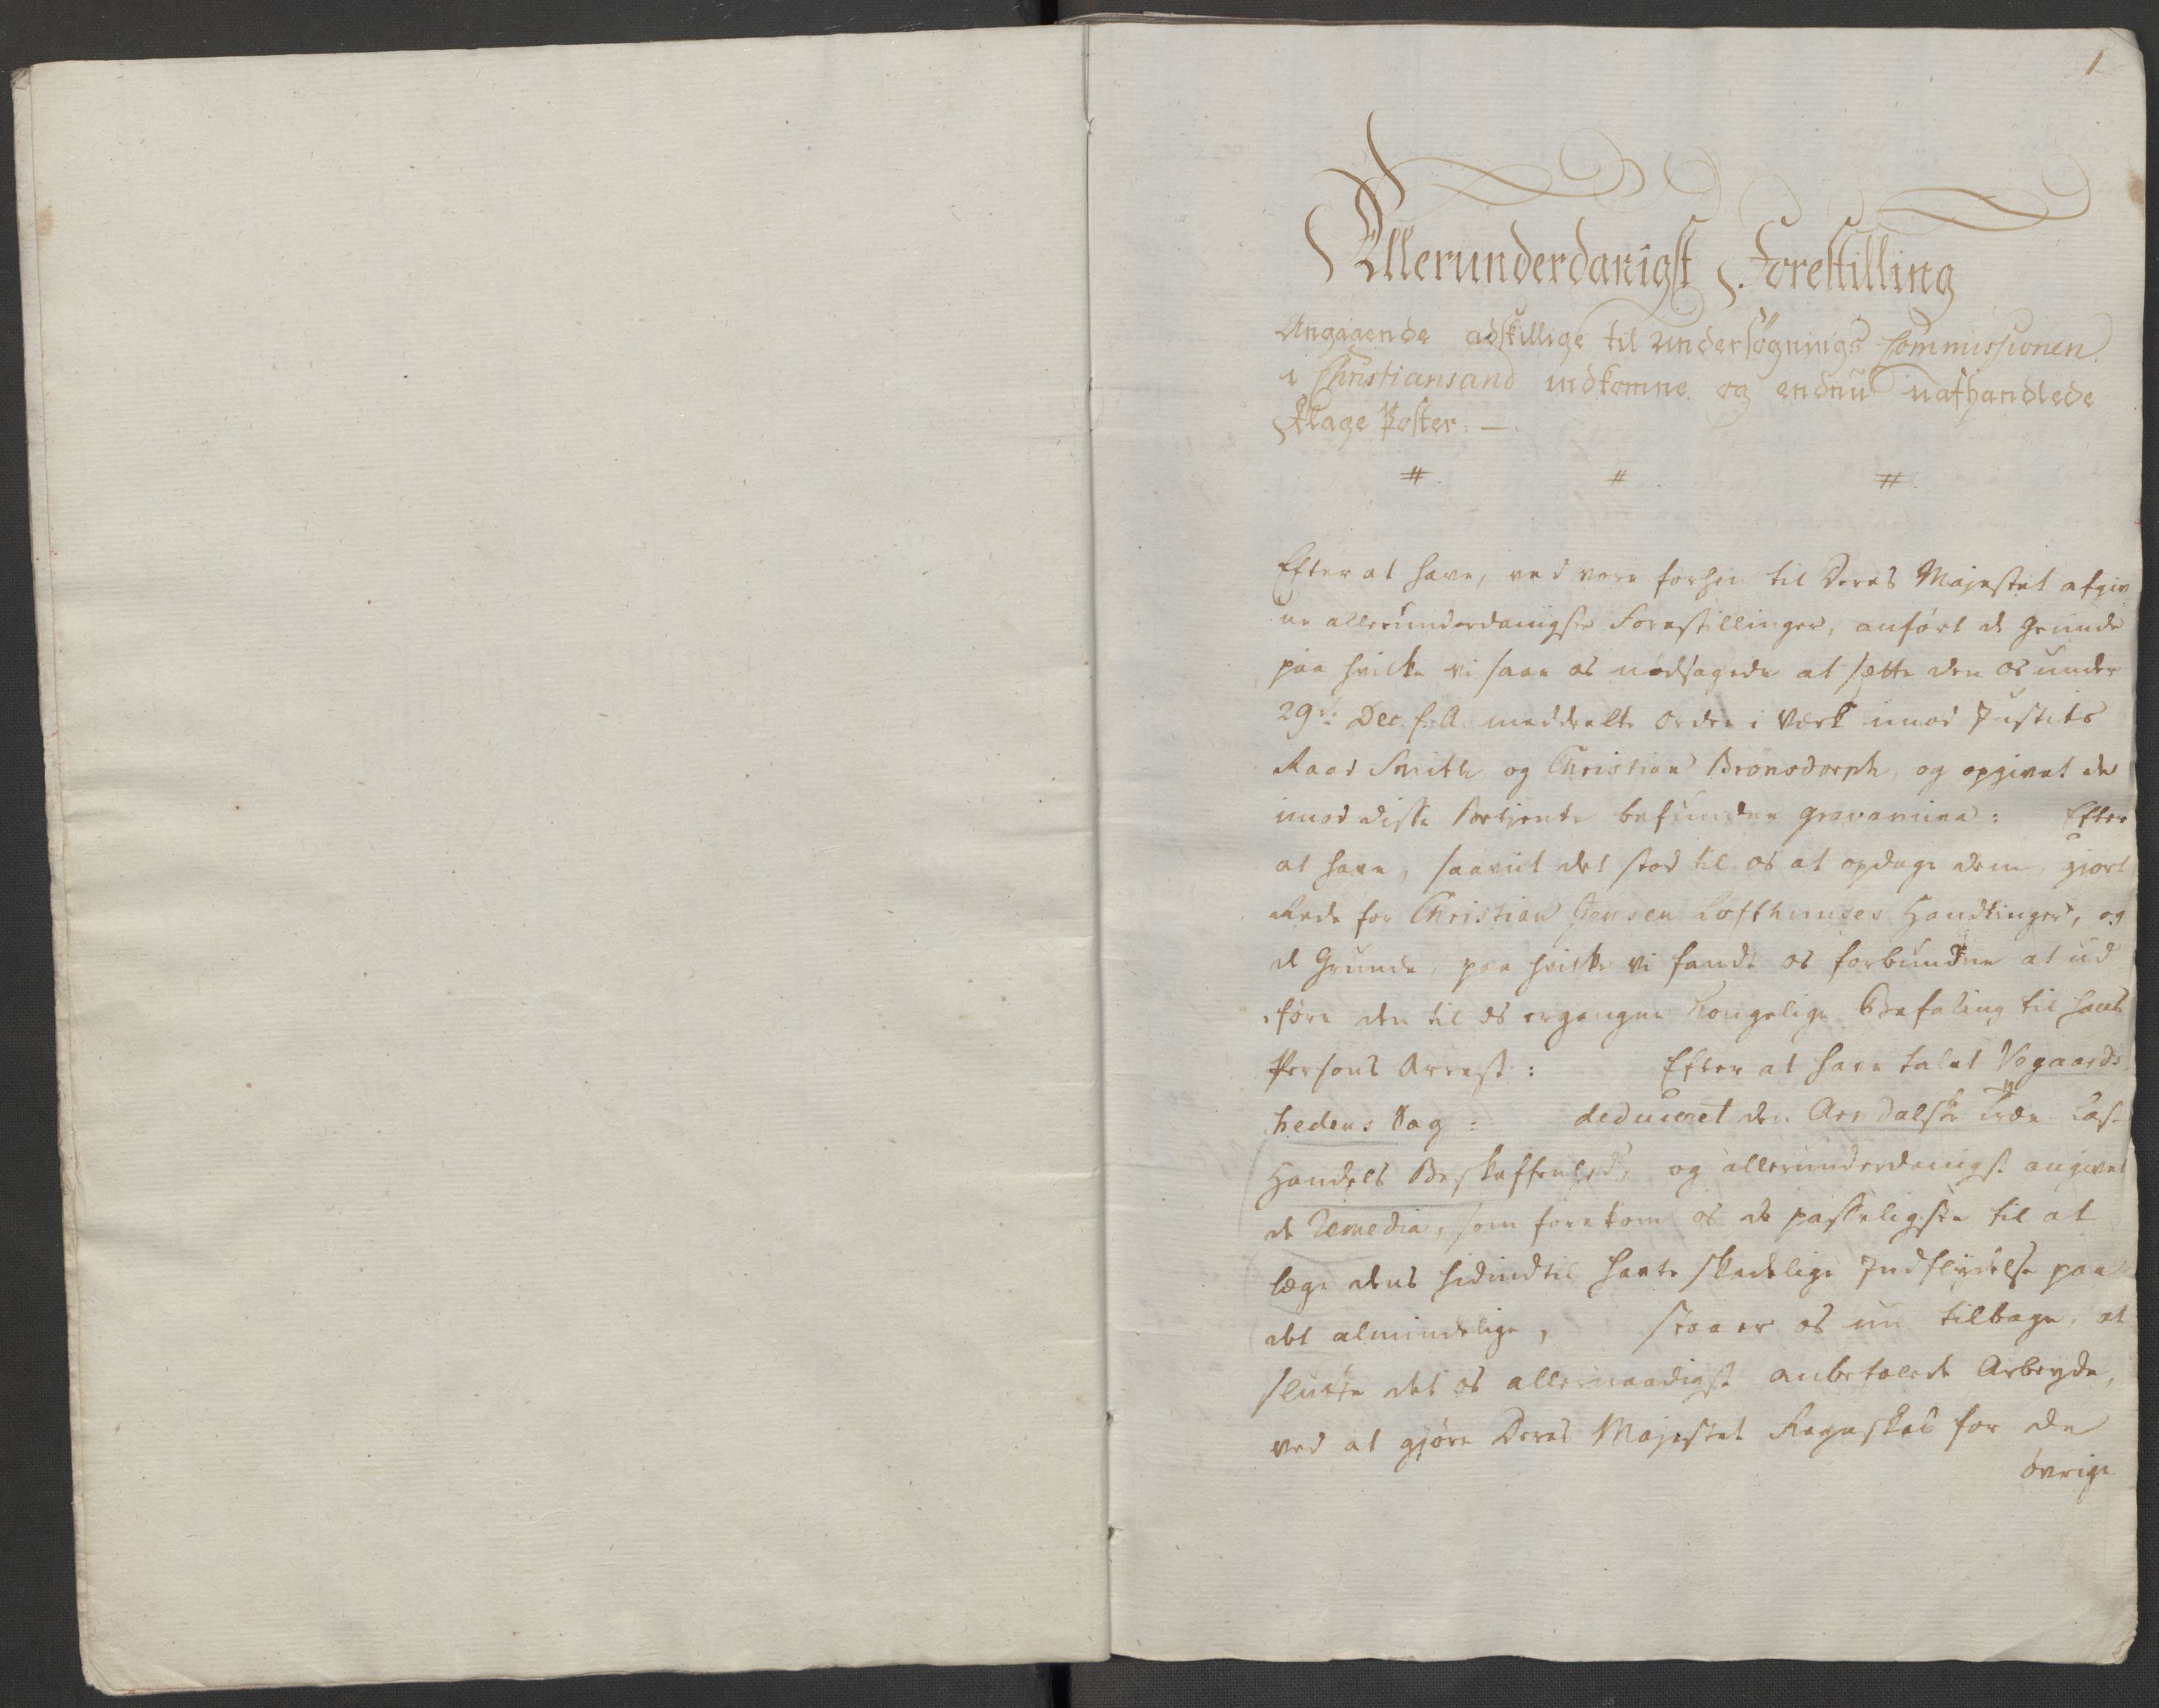 1
Allerunderdanigst Forestilling
Angaaende adskillige til Undersøgnings Commissionen
i Christiansand indkomne og endnu uafhandlede
Klage Poster. —
# # #
Efter at have, ved vore forhen til Deres Majestet afgiv
ne allerunderdanigste Forestillinger, anført de Grunde
paa hvilke vi saae os nødsagede at sætte den os under
29de Dec. f. A. meddeelte Ordre i Værk imod Justits
Raad Smith og Christian Brønsdorph, og opgivet de
imod disse Betjente befundne gravamina: Efter
at have, saavidt det stod til os at opdage dem, gjort
Rede for Christian Jensen Lofthuuses Handlinger, og
de Grunde, paa hvilke vi fandt os forbundne at ud
føre den til os ergangne Kongelige Befaling til hans
Persons Arrest: Efter at have talet
hedens Sag: deduceret den Arendalske Træe Last
Handels Beskaffenhed, og allerunderdanigst angivet
de Remedia, som forekom os de passeligste til at
læge dens hidindtil havte skadelige Indflydelse paa
det almindelige, staaer os nu tilbage, at
slutte det os allernaadigst anbefalede Arbeyde,
ved at gjøre Deres Majestet Regnskab for de
øvrige